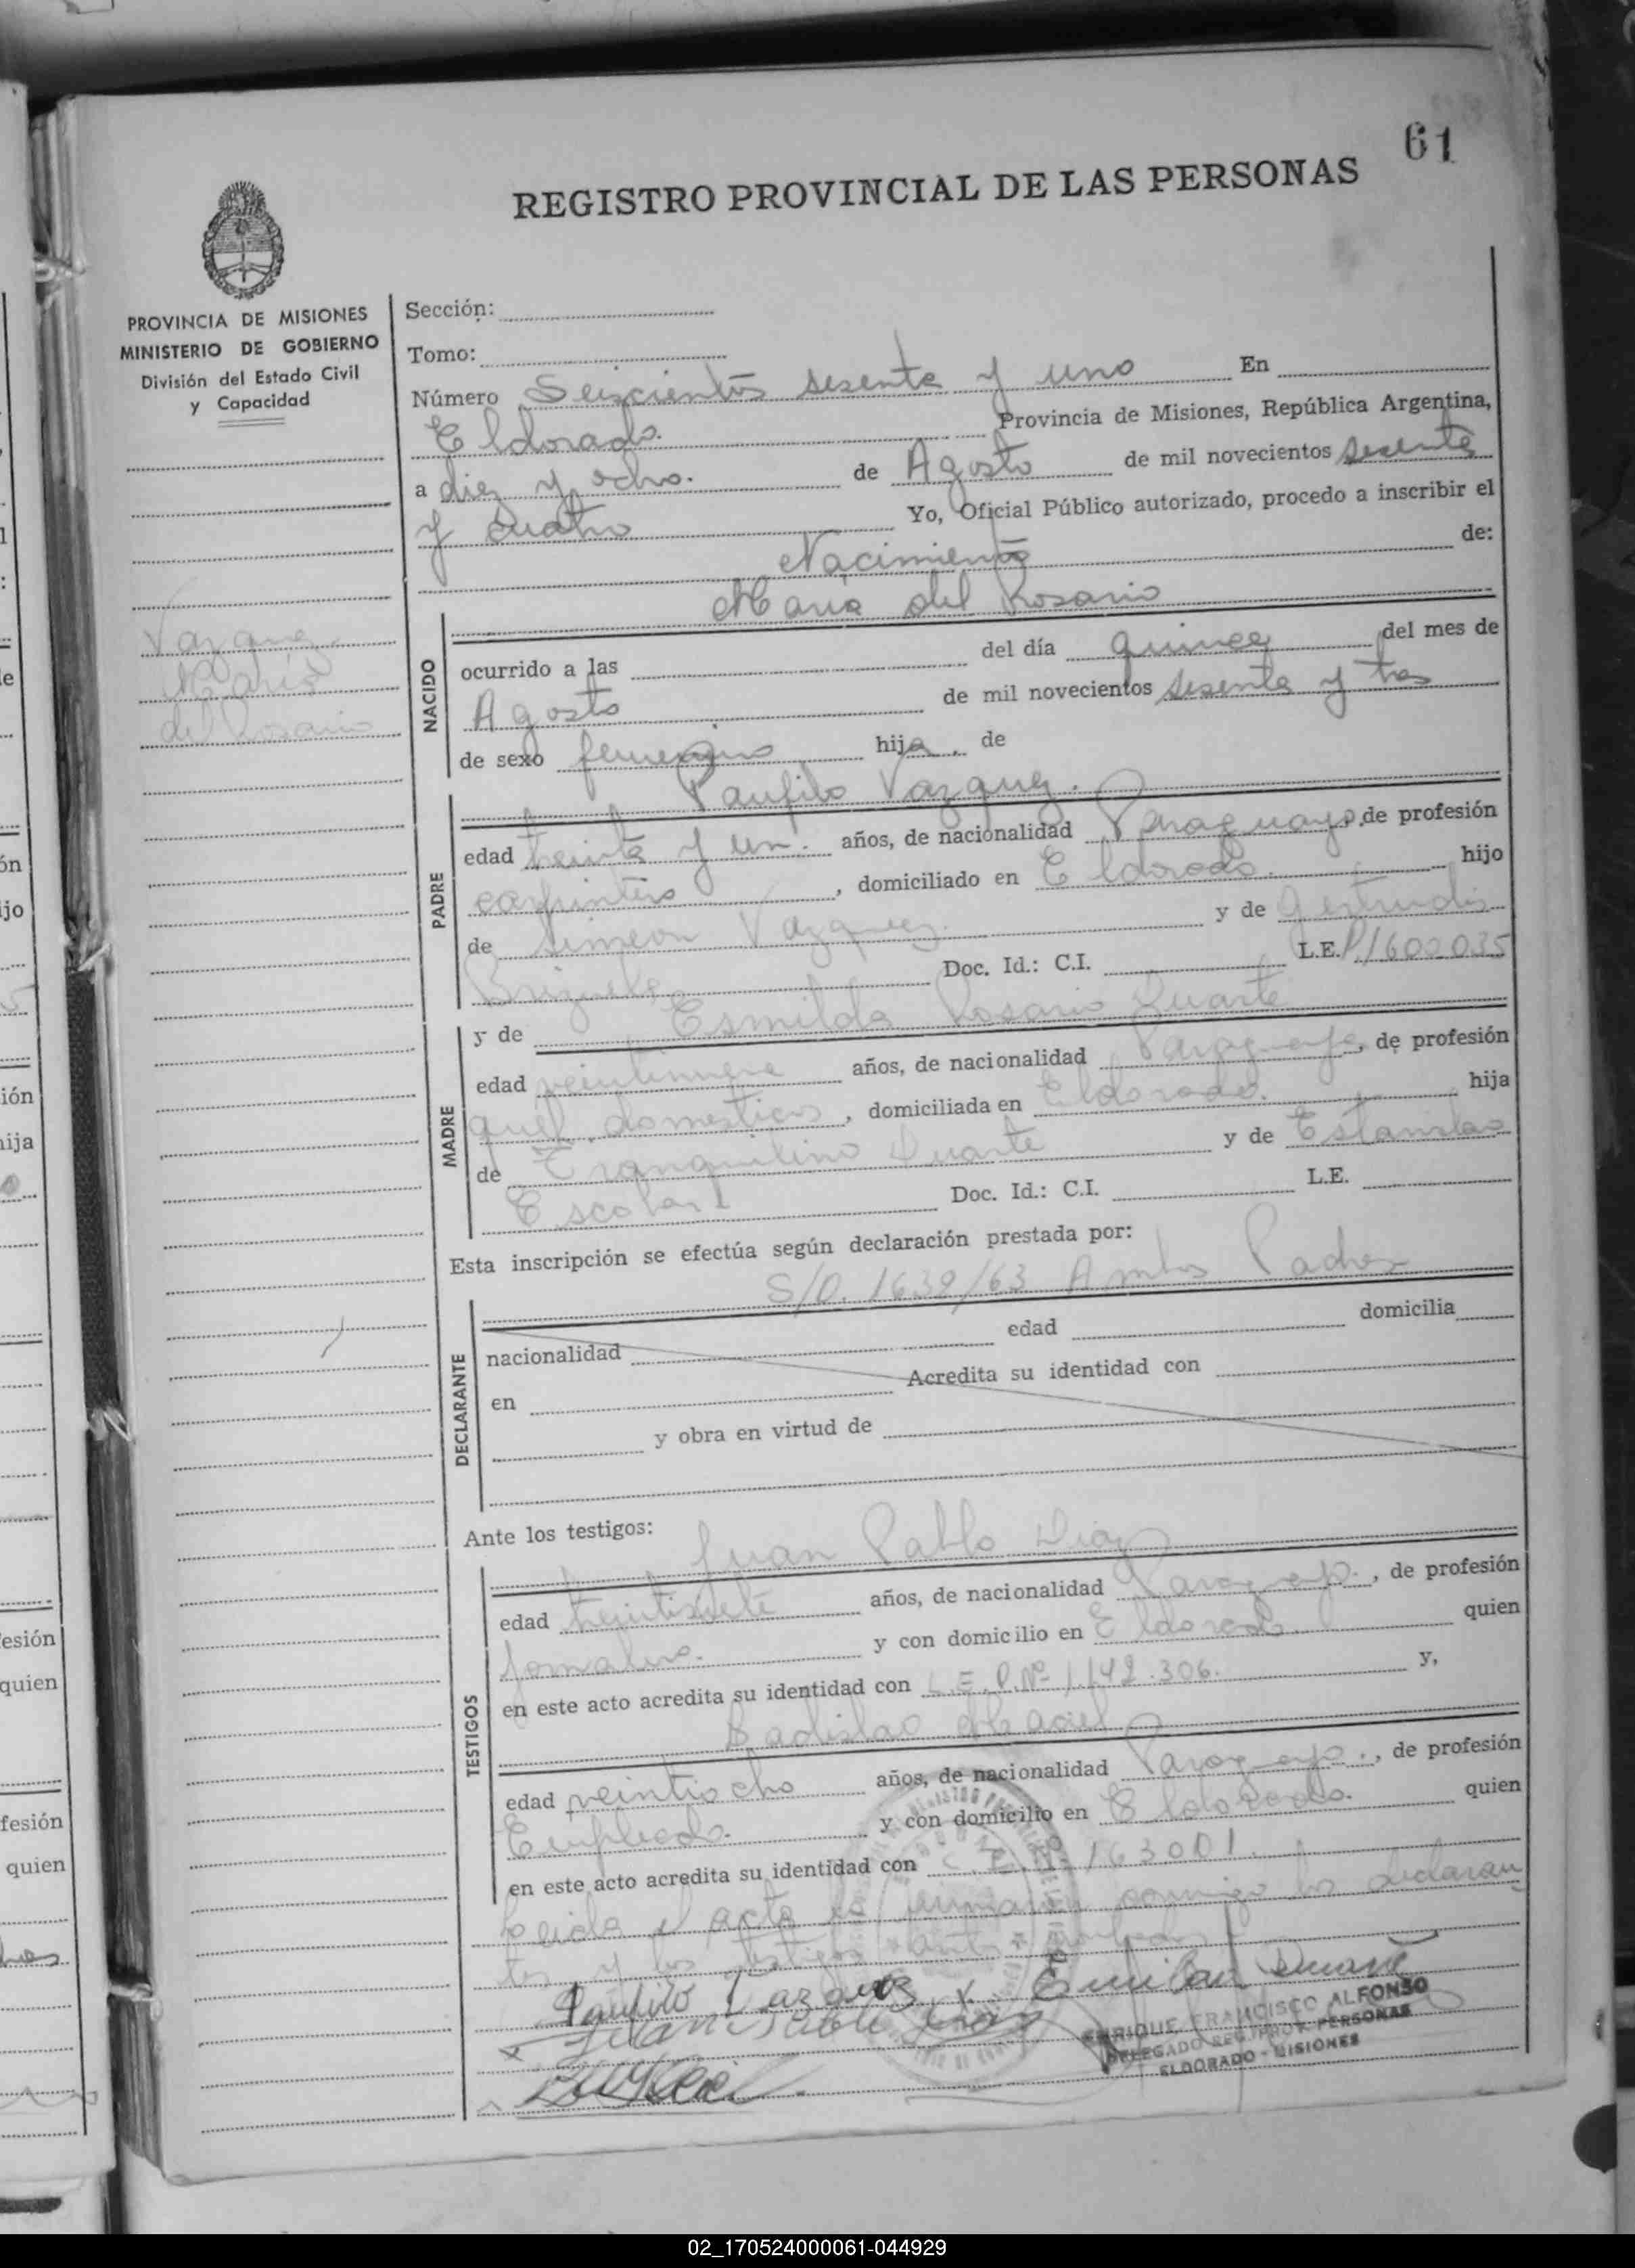 61
REGISTRO PROVINCIAL DE LAS PERSONAS
PROVINCIA DE MISIONES
MINISTERIO DE GOBIERNO
División del Estado Civil
y Capacidad
Vazquez
María
del Rosario
Sección:
Tomo:
Número Seiscientos sesenta y uno En
Eldorado. Provincia de Misiones, República Argentina,
a diez y ocho. de Agosto de mil novecientos sesenta
y cuatro Yo, Oficial Público autorizado, procedo a inscribir el
Nacimiento de:
María del Rosario
NACIDO
ocurrido a las del día quince del mes de
Agosto de mil novecientos sesenta y tres
de sexo femenino hija, de
Panfilo Vazquez.
PADRE
edad treinta y un. años, de nacionalidad Paraguayo, de profesión
carpintero, domiciliado en Eldorado. hijo
de Simeon Vazquez. y de Gertrudis
Brizuela Doc. Id.: C.I. L.E. P/602035
y de Esmilda Rosario Duarte
MADRE
edad veintinueve años, de nacionalidad Paraguaya, de profesión
queh. domesticos, domiciliada en Eldorado. hija
de Tranquilino Duarte y de Estanislao
Escobar Doc. Id.: C.I. L.E.
Esta inscripción se efectúa según declaración prestada por:
S/O. 1639/63 Ambos Padres
DECLARANTE
nacionalidad edad domicilia
en Acredita su identidad con
y obra en virtud de
Ante los testigos:
Juan Pablo Diaz
TESTIGOS
edad treintisiete años, de nacionalidad Paraguayo., de profesión
Jornalero. y con domicilio en Eldorado. quien
en este acto acredita su identidad con C.E.P.Nº 1.142.306. y,
Ladislao Maciel
edad veintiocho años, de nacionalidad Paraguayo., de profesión
Empleado. y con domicilio en Eldorado. quien
en este acto acredita su identidad con 163001.
Leida el acta la firmaron conmigo los declaran
tes y los testigos
Panfilo Vazquez Duarte
Juan Pablo Diaz
ENRIQUE FRANCISCO ALFONSO
DELEGADO REG. PROV. PERSONAS
ELDORADO - MISIONES
02_170524000061-044929